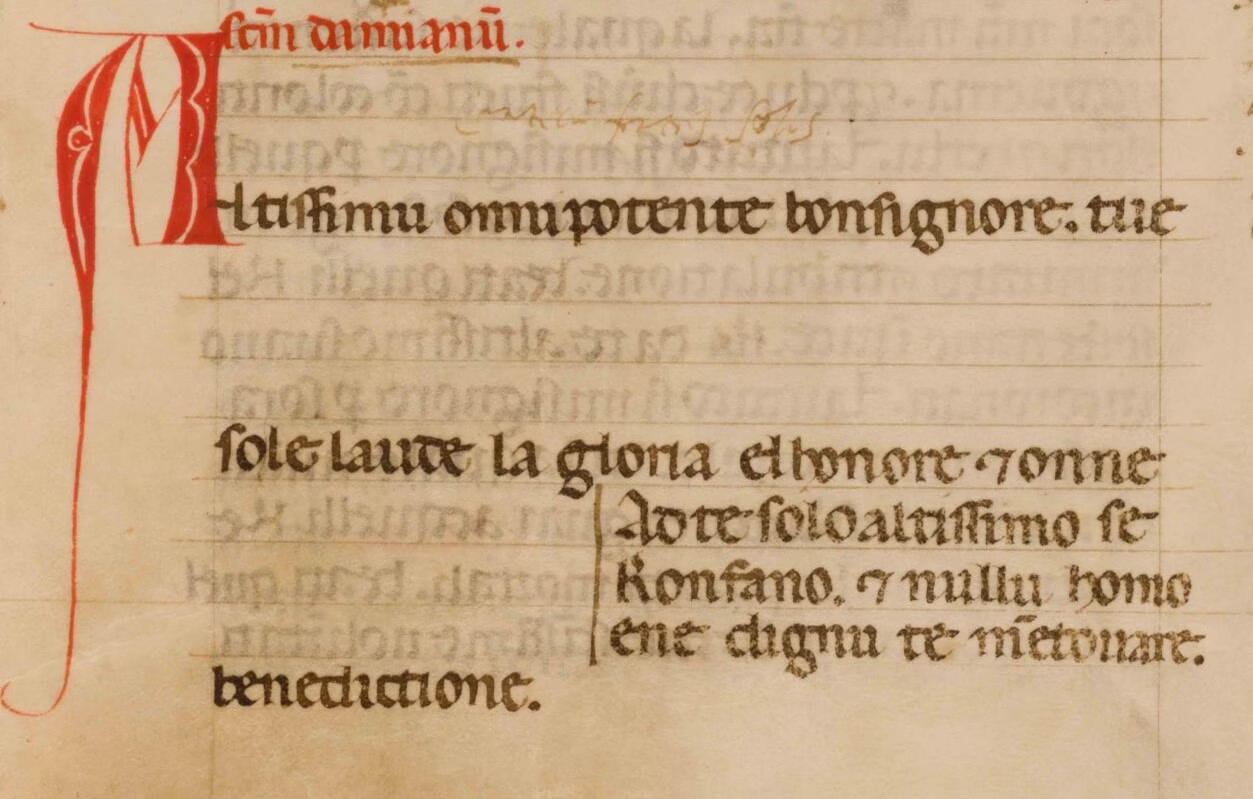 scm̄ damianū.
Altissimu omnipotente bonsignore. tue
sole laude la gloria elhonore ⁊ onne
Ad te solo altissimo se
Konfano. ⁊ nullu homo
ene dignu te m̄etouare.
benedictione.